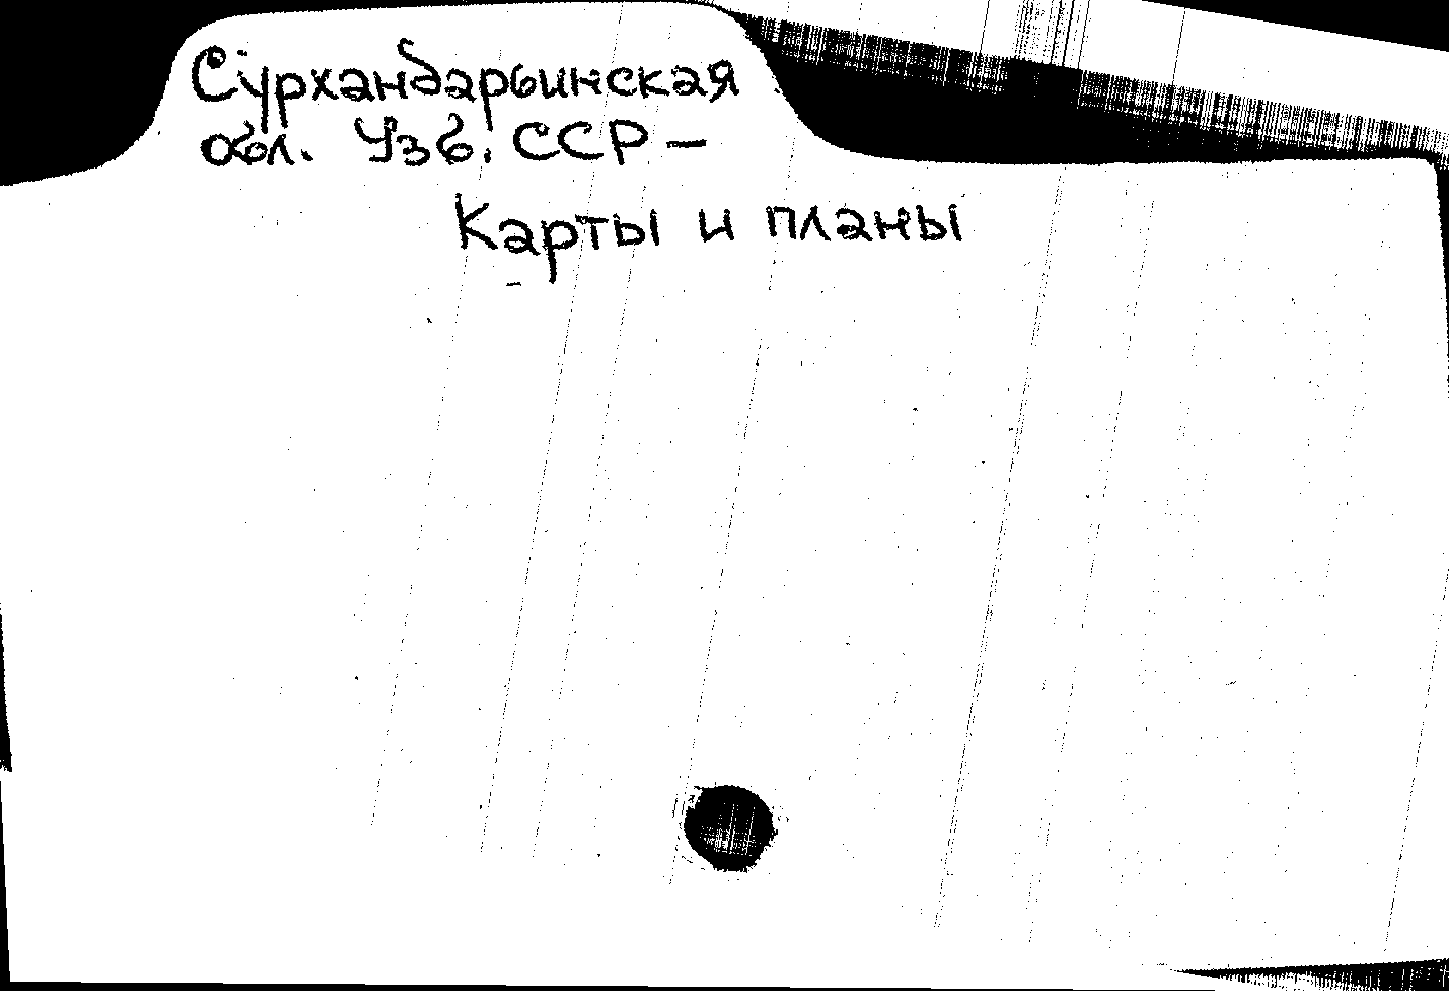 Сурхандарьинская
обл. Узб. ССР –
Карты и планы